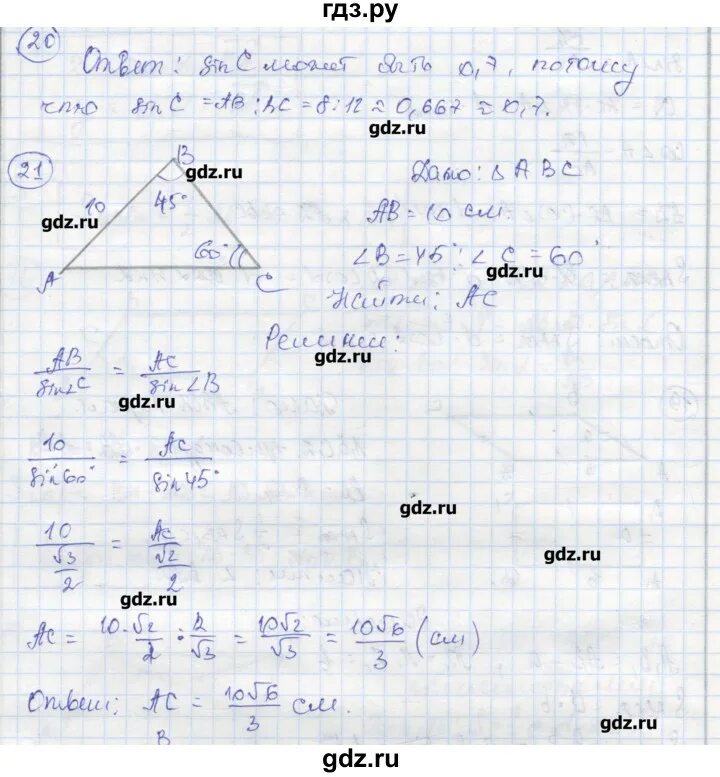 гдз.ру
20
Ответ: sin C может быть 0,7, потому
что sin C = AB : AC = 8 : 12 ≈ 0,667 ≈ 0,7.
gdz.ru
21
B
gdz.ru
Дано: Δ ABC
10
45°
AB = 10 см.
gdz.ru
60°
∠B = 45°; ∠C = 60°
gdz.ru
A
C
Найти: AC
Решение:
gdz.ru
AB/sin∠C = AC/sin∠B
gdz.ru
10/sin60° = AC/sin45°
gdz.ru
10/(√3/2) = AC/(√2/2)
gdz.ru
gdz.ru
AC = 10·√2/2 · 2/√3 = 10√2/√3 = 10√6/3 (см)
Ответ: AC = 10√6/3 см.
gdz.ru
B
gdz.ru